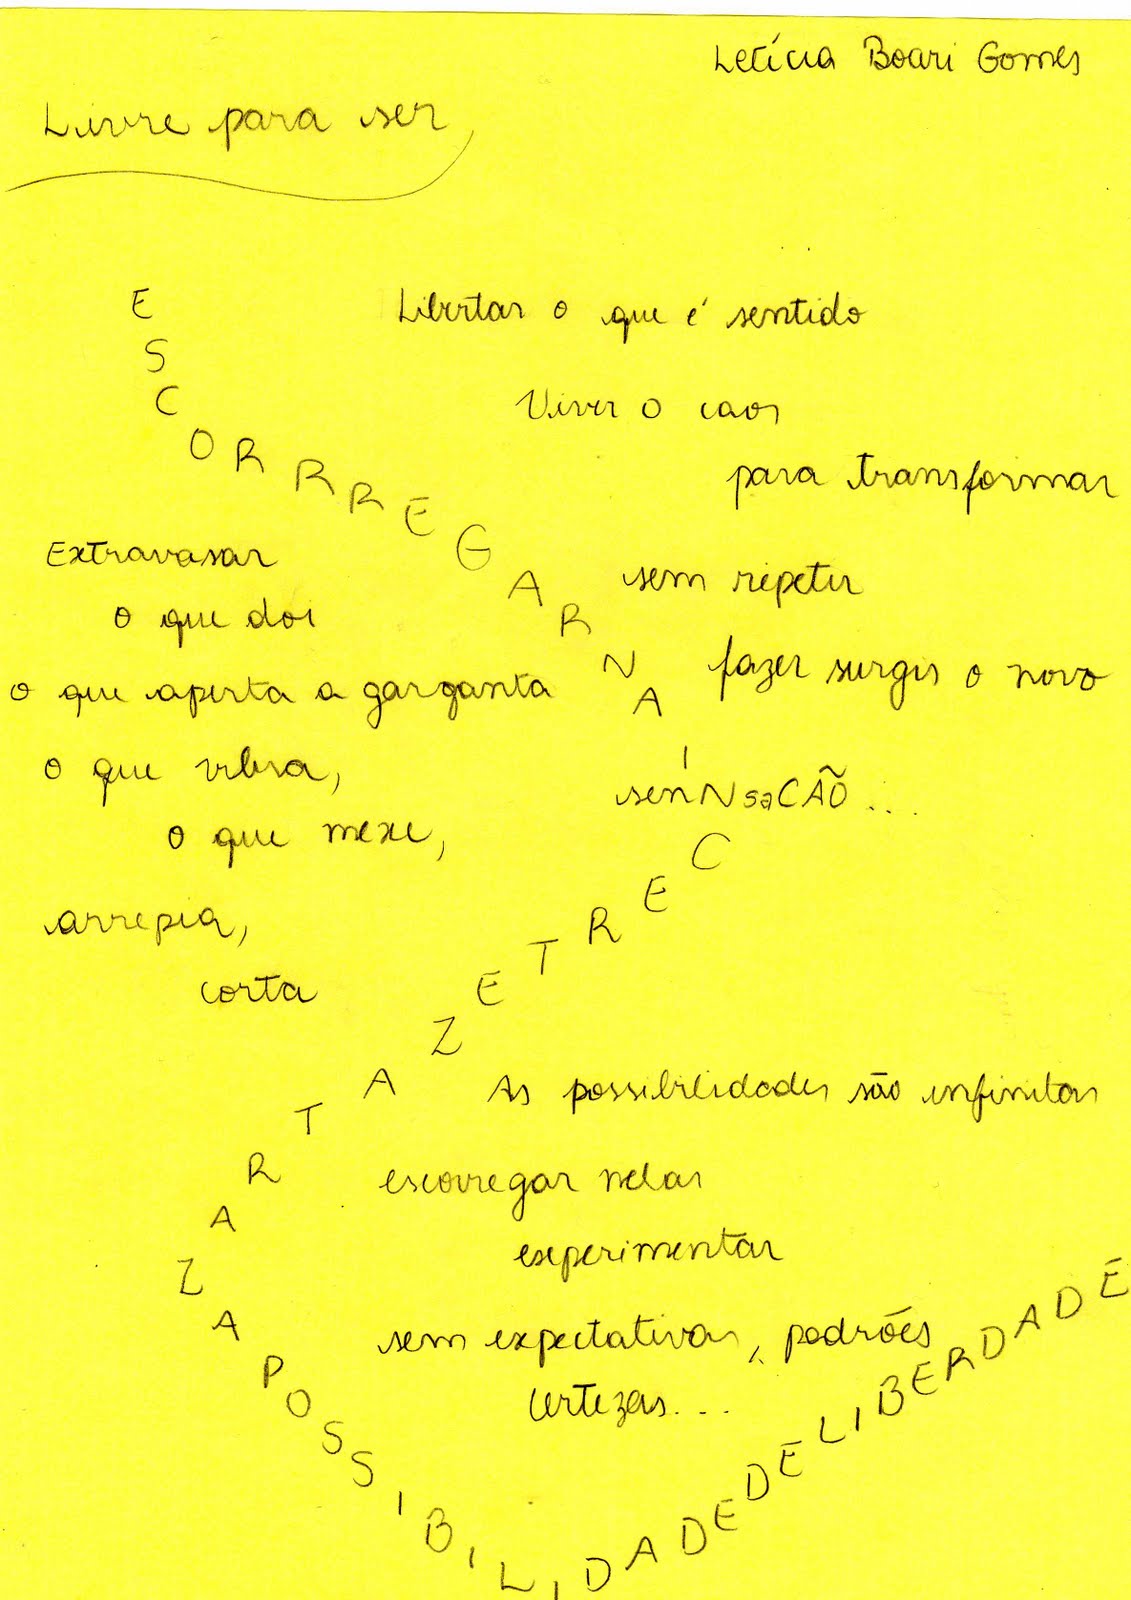 Letícia Boari Gomes
Livre para ser
ESCORRREGARNAI
Libertar o que é sentido
Viver o caos
para transformar
sem repetir
fazer surgir o novo
senNsaCÃO...
Extravasar
o que doi
o que aperta a garganta
o que vibra,
o que mexe,
arrepia,
corta
CERTEZATRAZAPOSSIBILIDADEDELIBERDADE
As possibilidades são infinitas
escorregar nelas
experimentar
sem expectativas, padrões
certezas...